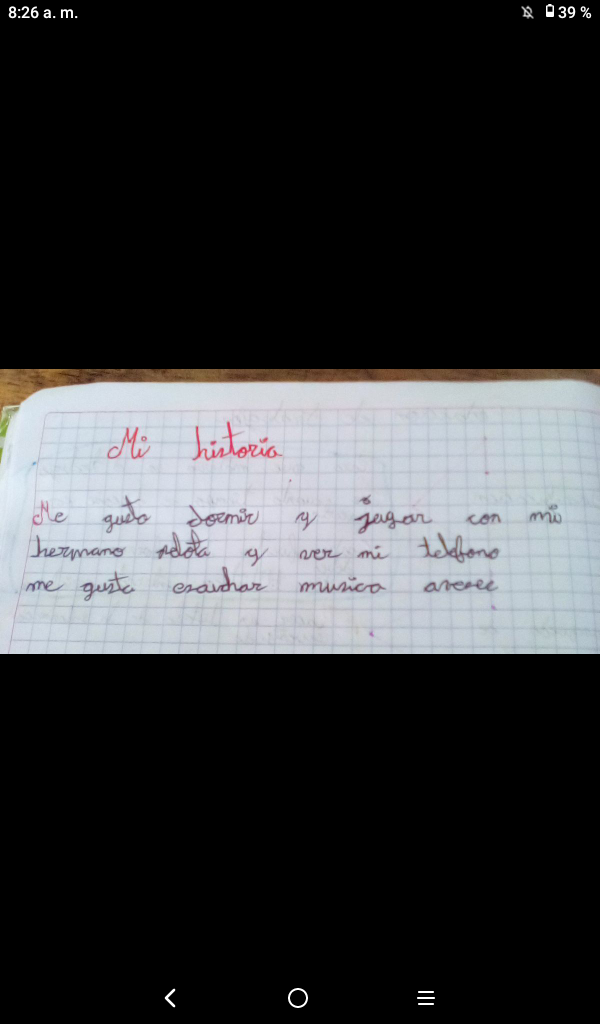 8:26 a. m.
39 %
Mi historia
Me gusto dormir y jugar con mi
hermano pelota y ver mi telefono
me gusta escuchar musica avese